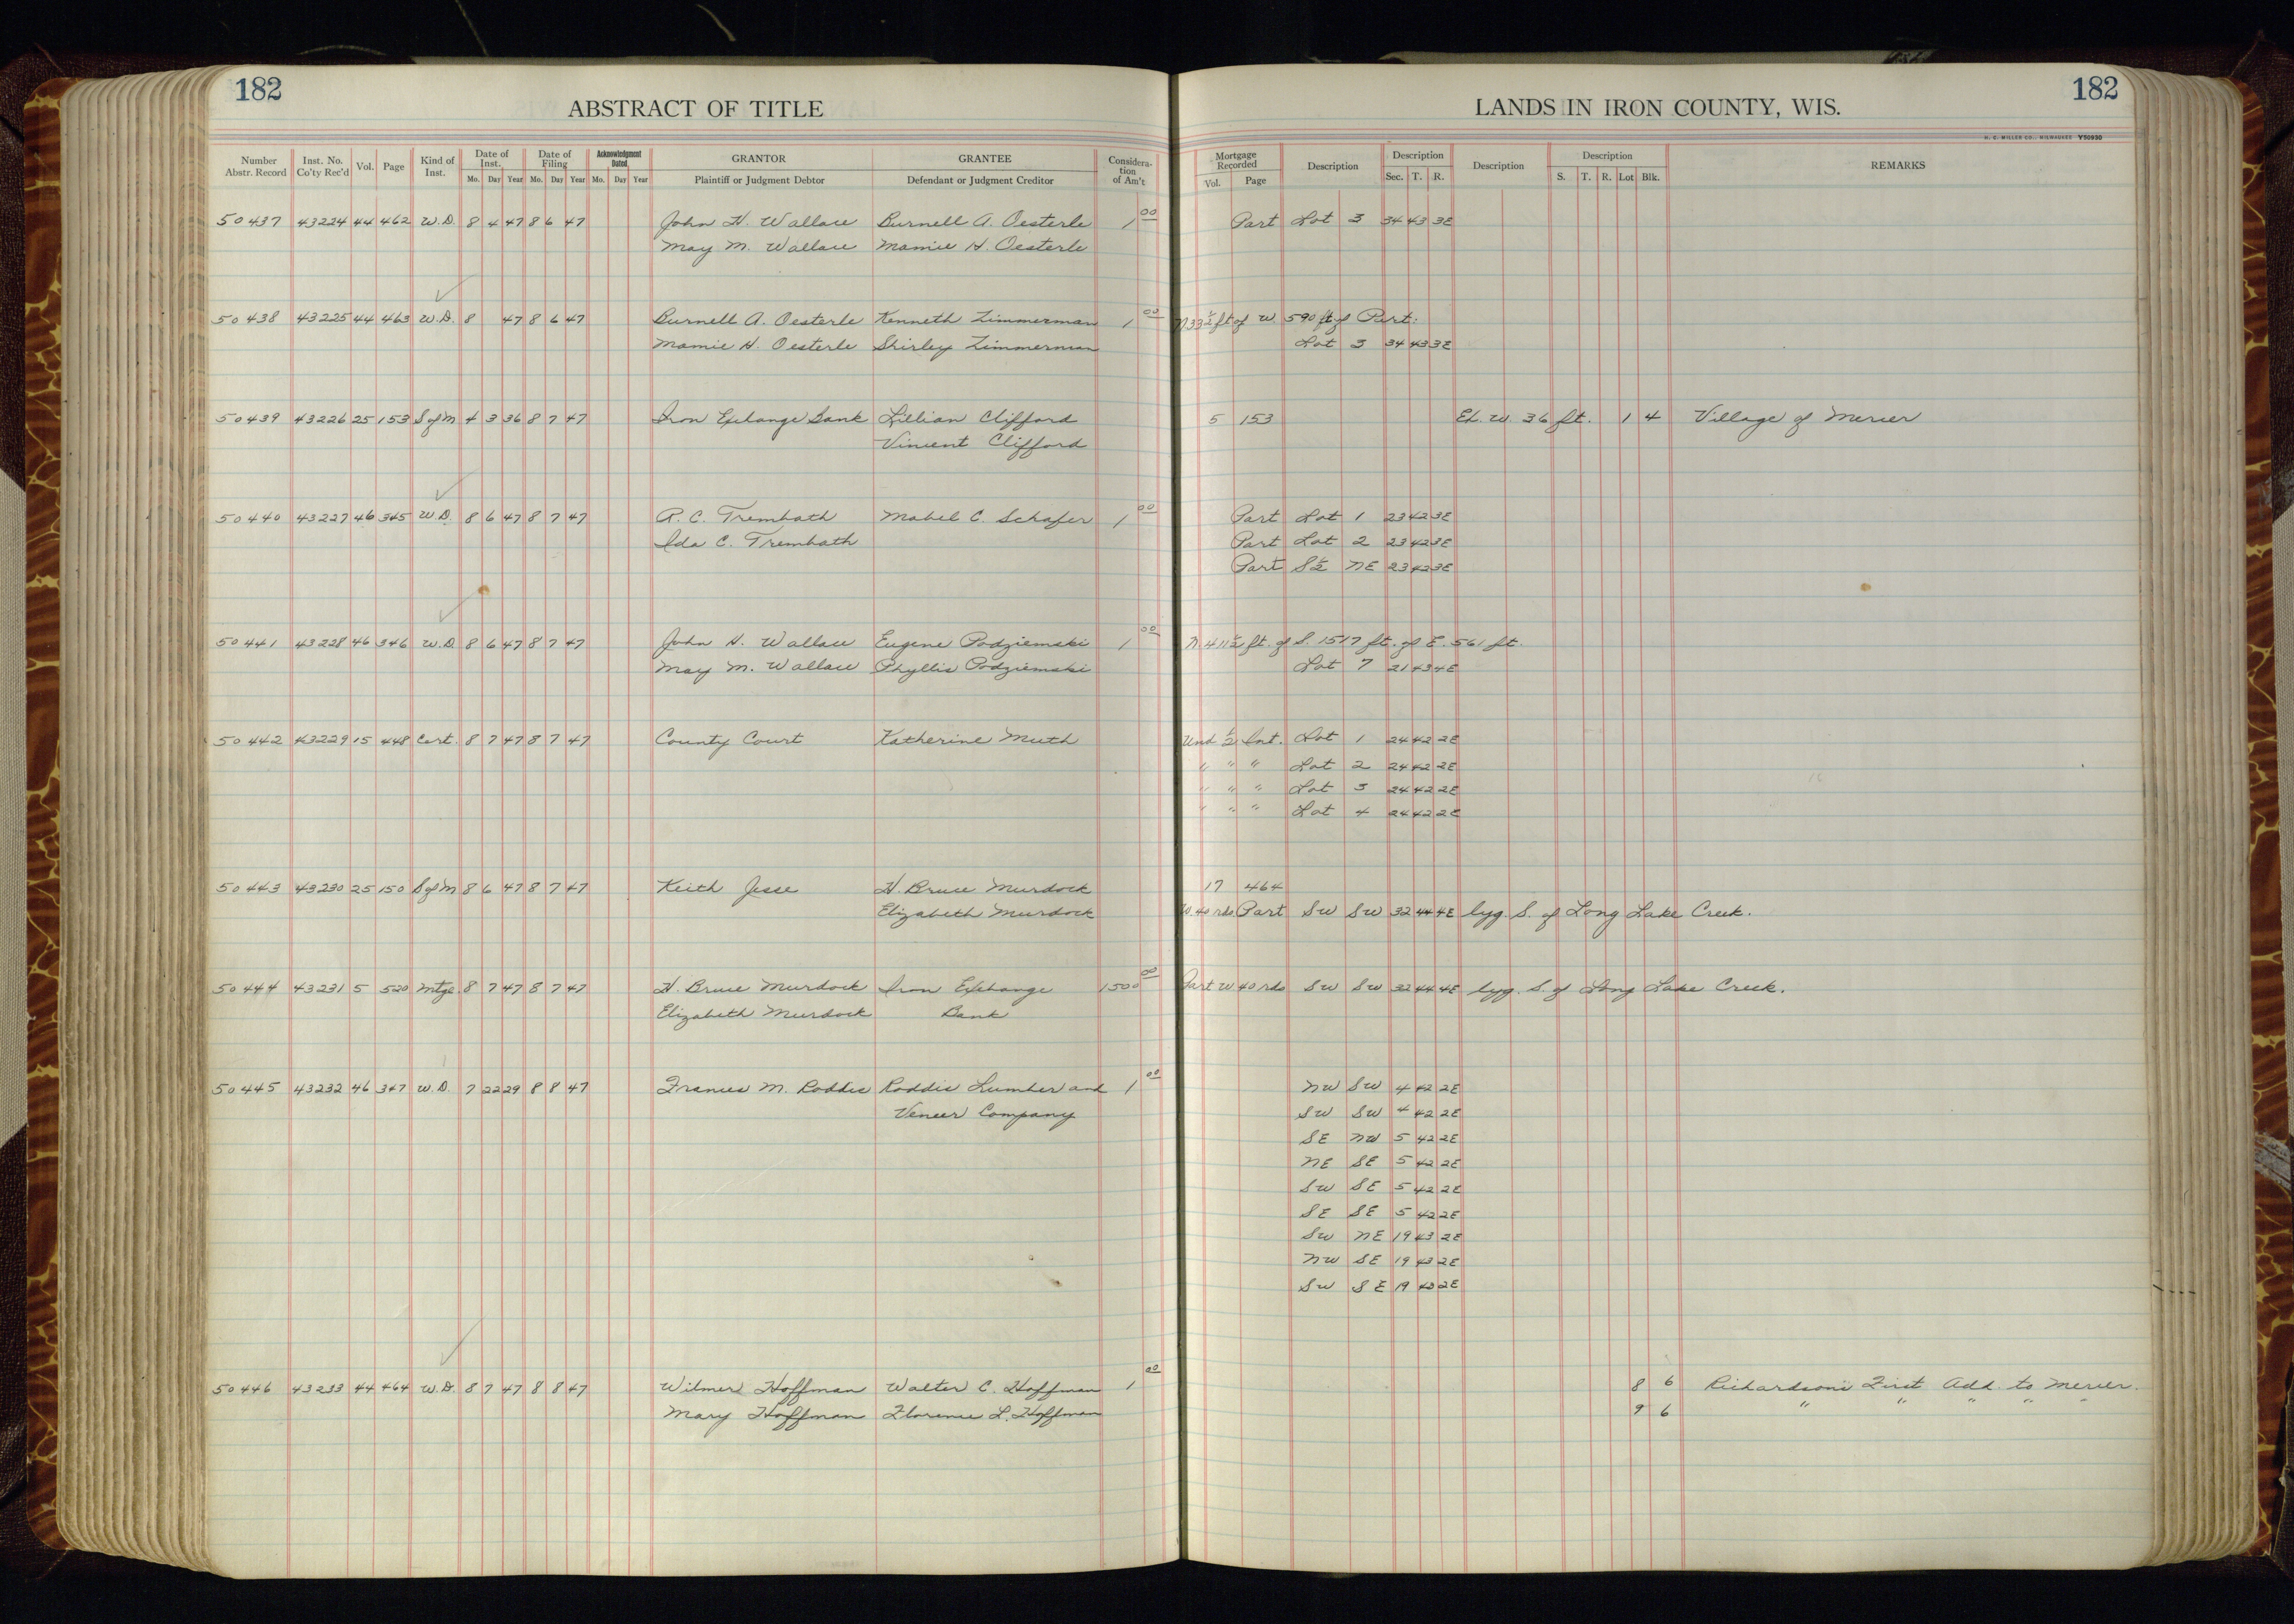 182
ABSTRACT OF TITLE
LANDS IN IRON COUNTY, WIS.
182
H. C. MILLER CO., MILWAUKEE Y50930
Number Abstr. Record Inst. No. Co'ty Rec'd Vol. Page Kind of Inst. Date of Inst. Mo. Day Year Date of Filing Mo. Day Year Acknowledgment Dated Mo. Day Year GRANTOR Plaintiff or Judgment Debtor GRANTEE Defendant or Judgment Creditor Considera-tion of Am't Mortgage Recorded Vol. Page Description Description Sec. T. R. Description Description S. T. R. Lot Blk. REMARKS
50437 43224 44 462 W.D. 8 4 47 8 6 47 John H. Wallace Burnell A. Oesterle 1 00 Part Lot 3 34 43 3E
May M. Wallace Mamie H. Oesterle
50438 43225 44 463 W.D. 8 47 8 6 47 Burnell A. Oesterle Kenneth Zimmerman 1 00 N 33 1/2 ft of W 590 ft of Part:
Mamie H. Oesterle Shirley Zimmerman Lot 3 34 43 3E
50439 43226 25 153 S of M 4 3 36 8 7 47 Iron Exchange Bank Lillian Clifford 5 153 Ex. W. 36 ft. 1 4 Village of Mercer
Vincent Clifford
50440 43227 46 345 W.D. 8 6 47 8 7 47 R. C. Trembath Mabel C. Schafer 1 00 Part Lot 1 23 42 3E
Ida C. Trembath Part Lot 2 23 42 3E
Part S 1/2 NE 23 42 3E
50441 43228 46 346 W.D. 8 6 47 8 7 47 John H. Wallace Eugene Podziemski 1 00 N. 411 1/2 ft. of S. 1517 ft. of E. 561 ft.
May M. Wallace Phyllis Podziemski Lot 7 21 43 4E
50442 43229 15 448 Cert. 8 7 47 8 7 47 County Court Katherine Muth Und 1/2 Int. Lot 1 24 42 2E
" " " Lot 2 24 42 2E
" " " Lot 3 24 42 2E
" " " Lot 4 24 42 2E
50443 43230 25 150 S of M 8 6 47 8 7 47 Keith Jesse H. Bruce Murdock 17 464
Elizabeth Murdock W. 40 rds Part SW SW 32 44 4E lyg. S. of Long Lake Creek.
50444 43231 5 520 Mtge. 8 7 47 8 7 47 H. Bruce Murdock Iron Exchange 1500 00 Part W 40 rds SW SW 32 44 4E lyg. S. of Long Lake Creek.
Elizabeth Murdock Bank
50445 43232 46 347 W.D. 7 22 29 8 8 47 Frances M. Roddis Roddis Lumber and 1 00 NW SW 4 42 2E
Veneer Company SW SW 4 42 2E
SE NW 5 42 2E
NE SE 5 42 2E
SW SE 5 42 2E
SE SE 5 42 2E
SW NE 19 43 2E
NW SE 19 43 2E
SW SE 19 43 2E
50446 43233 44 464 W.D. 8 7 47 8 8 47 Wilmer Hoffman Walter C. Hoffman 1 00 8 6 Richardson's First Add. to Mercer.
Mary Hoffman Florence L. Hoffman 9 6 " " " " "